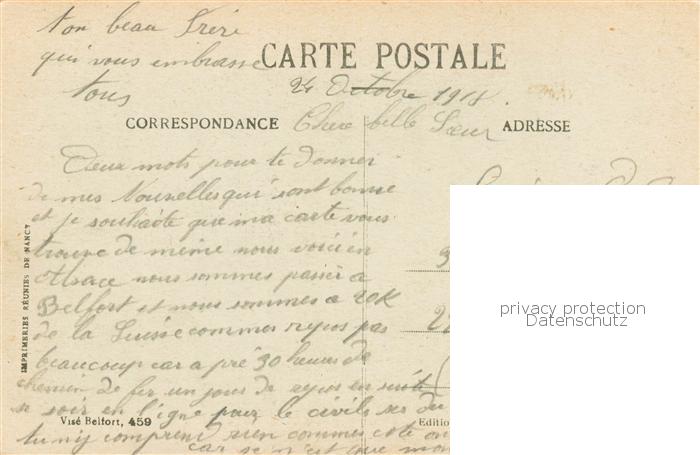 ton beau Frère
qui vous embrasse
tous
CARTE POSTALE
24 Octobre 1918.
CORRESPONDANCE
Chere belle Sœur
ADRESSE
Deux mots pour te donner
de mes Nouvelles qui sont bonne
et je souhaite que ma carte vous
trouve de même nous voici en
Alsace nous sommes passer a
Belfort et nous sommes a 20K
de la Suisse comme repos pas
beaucoup car a pré 30 heures de
chemin de fer un jours de repos en suite
se soir en ligne pour le civils ses du
tu ny comprend rien comme cote on
car se n'est que
IMPRIMERIES RÉUNIES DE NANCY
Visé Belfort, 459
Editio
privacy protection
Datenschutz